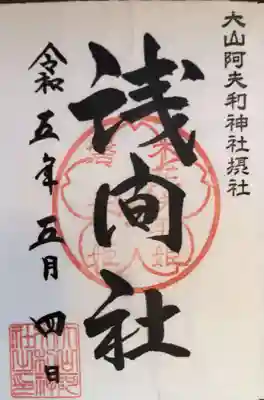 大山阿夫利神社摂社
浅間社
令和五年五月四日